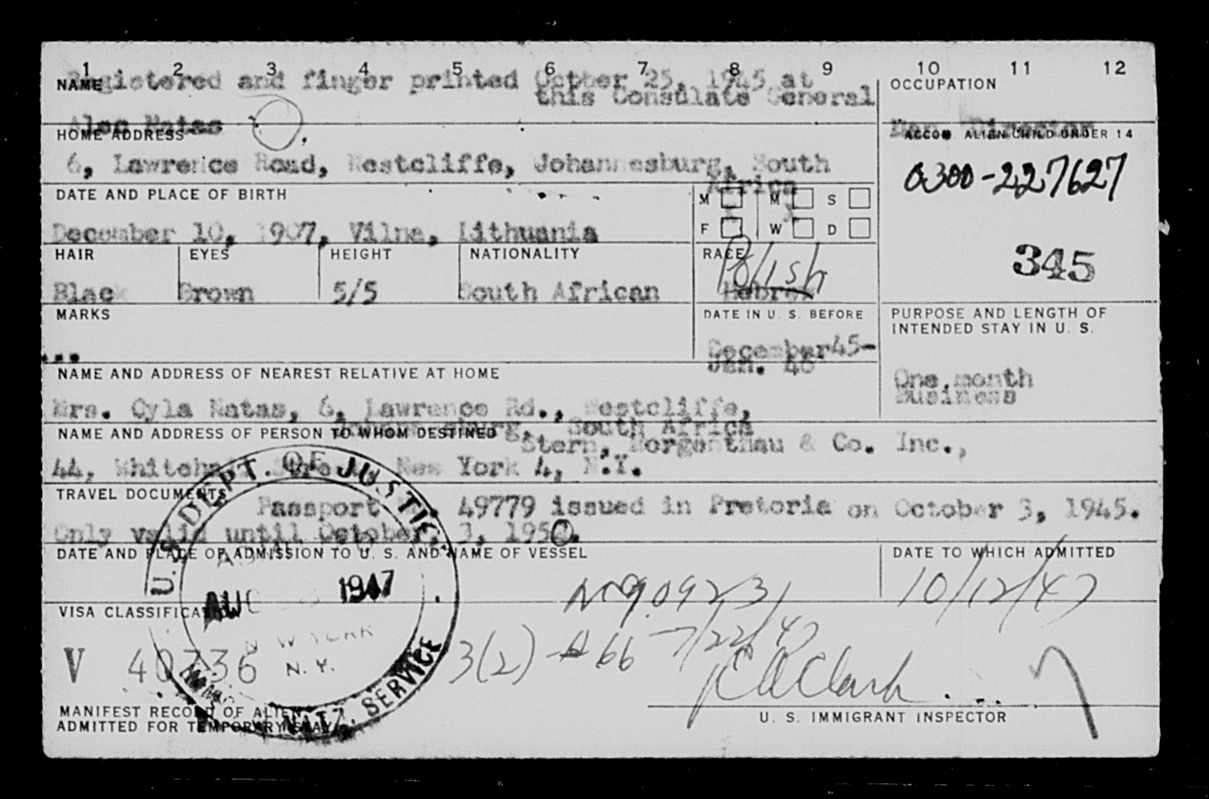 1 2 3 4 5 6 7 8 9 10 11 12
NAME Registered and finger printed October 25, 1945 at
this Consulate General
OCCUPATION
Alen Matas
Director
HOME ADDRESS
ACCOM. ALIEN CHILD UNDER 14
6, Lawrence Road, Westcliffe, Johannesburg, South
Africa
0300-227627
DATE AND PLACE OF BIRTH
M M S
F W D
December 10, 1907, Vilna, Lithuania
HAIR EYES HEIGHT NATIONALITY RACE
Polish
345
Black Brown 5/5 South African Hebrew
MARKS
DATE IN U. S. BEFORE
PURPOSE AND LENGTH OF
INTENDED STAY IN U. S.
...
December 45-
Jan. 46
NAME AND ADDRESS OF NEAREST RELATIVE AT HOME
One month
Business
Mrs. Cyla Matas, 6, Lawrence Rd., Westcliffe,
Johannesburg, South Africa
NAME AND ADDRESS OF PERSON TO WHOM DESTINED
Stern, Morgenthau & Co. Inc.,
44, Whitehall Street, New York 4, N.Y.
TRAVEL DOCUMENTS
Passport 49779 issued in Pretoria on October 3, 1945.
Only valid until October, 3, 1950.
DATE AND PLACE OF ADMISSION TO U. S. AND NAME OF VESSEL
DATE TO WHICH ADMITTED
U.S. DEPT OF JUSTICE
AUG 1947
NEW YORK
N. Y.
SERVICE
10/12/47
VISA CLASSIFICATION
3(2) 7/22/47
V 40736
MANIFEST RECORD OF ALIEN
ADMITTED FOR TEMPORARY STAY
U. S. IMMIGRANT INSPECTOR